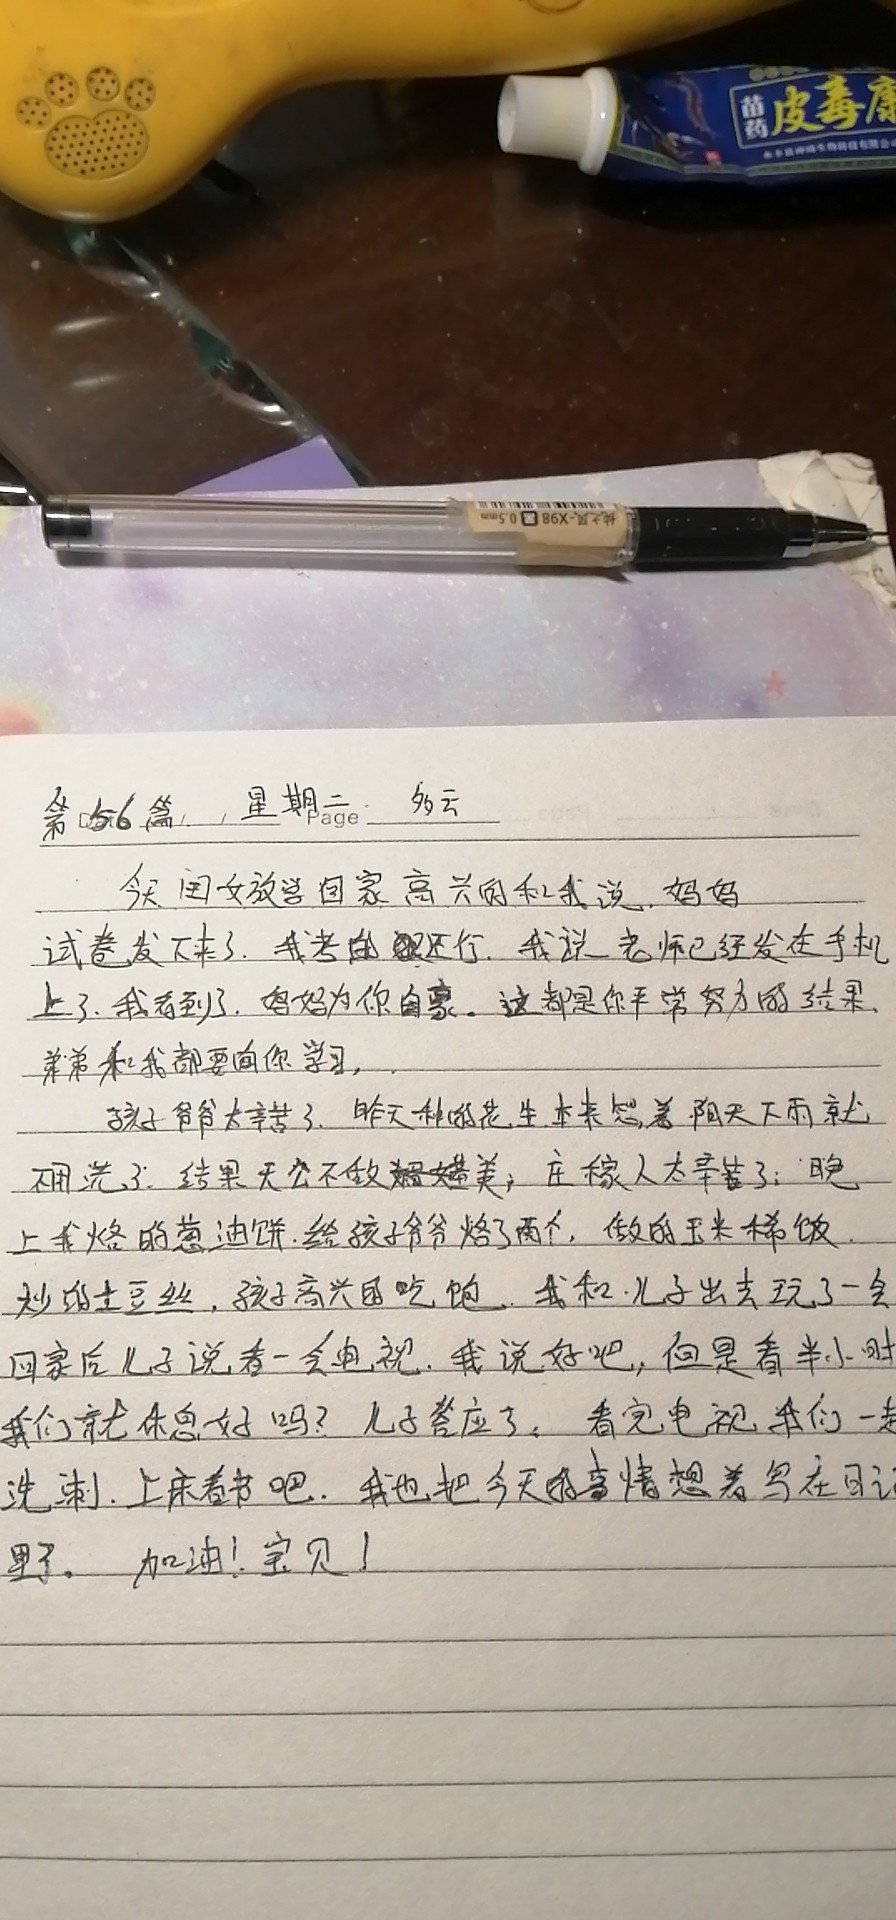 苗药 皮毒康
纯之风-X98 0.5mm
第56篇 星期二 多云
Page
今天闺女放学回家高兴的和我说.妈妈
试卷发下来了.我考的还行.我说.老师已经发在手机
上了.我看到了.妈妈为你自豪。这都是你平常努力的结果.
弟弟和我都要向你学习,
孩子爷爷太辛苦了.昨天种的花生本来想着阴天下雨就
不用浇了.结果天公不做美;庄稼人太辛苦了;晚
上我烙的葱油饼.给孩子爷爷烙了两个,做的玉米稀饭
炒的土豆丝,孩子高兴的吃饱.我和儿子出去玩了一会
回家后儿子说看一会电视.我说好吧,但是看半小时
我们就休息好吗?儿子答应了。看完电视我们一起
洗漱.上床看书吧.我也把今天的事情想着写在日记
里了。加油!宝贝!